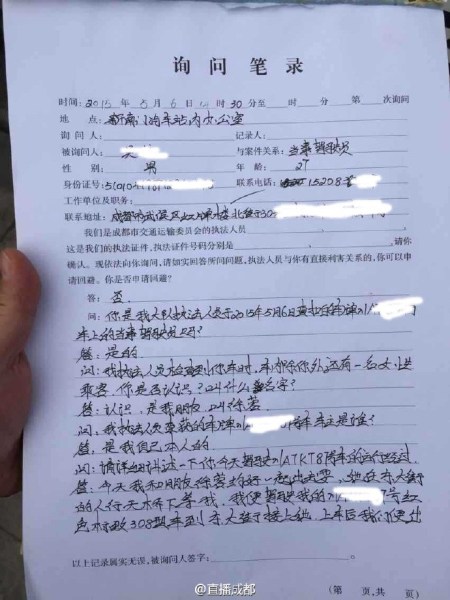 询 问 笔 录
时间：2015 年 5 月 6 日 时 30 分至 时 分 第 次询问
地 点：新南门汽车站内办公室
询 问 人： 记录人：
被询问人：吴 与案件关系：当事驾驶员
性 别： 男 年 龄：27
身份证号：51010 联系电话：15208
工作单位及职务：
联系地址：成都市武侯区 北 30
我们是成都市交通运输委员会的执法人员
这是我们的执法证件，执法证件号码分别是 ，请你
确认。现依法向你询问，请如实回答所问问题，执法人员与你有直接利害关系的，你可以申
请回避。你是否申请回避？
答：否。
问：你是我 执法人员于2015年5月6日查扣的车牌川A
车上的当事驾驶员吗？
答：是的。
问：我执法人员检查到你车时，车内除你外还有一名女性
乘客，你是否认识？叫什么名字？
答：认识，是我朋友，叫徐蓉。
问：我执法人员查获的车牌川A 的车车主是谁？
答：是我自己本人的。
问：请详细讲述一下你今天驾驶川ATKT8 车的运行经过。
答：今天我和朋友徐蓉约好一起出去耍，她在
的人行天桥下等我，我便驾驶我的川 7号红
色 308轿车到 接上她，上车后我们便出
以上记录属实无误，被询问人签字：
（第 页，共 页）
@直播成都